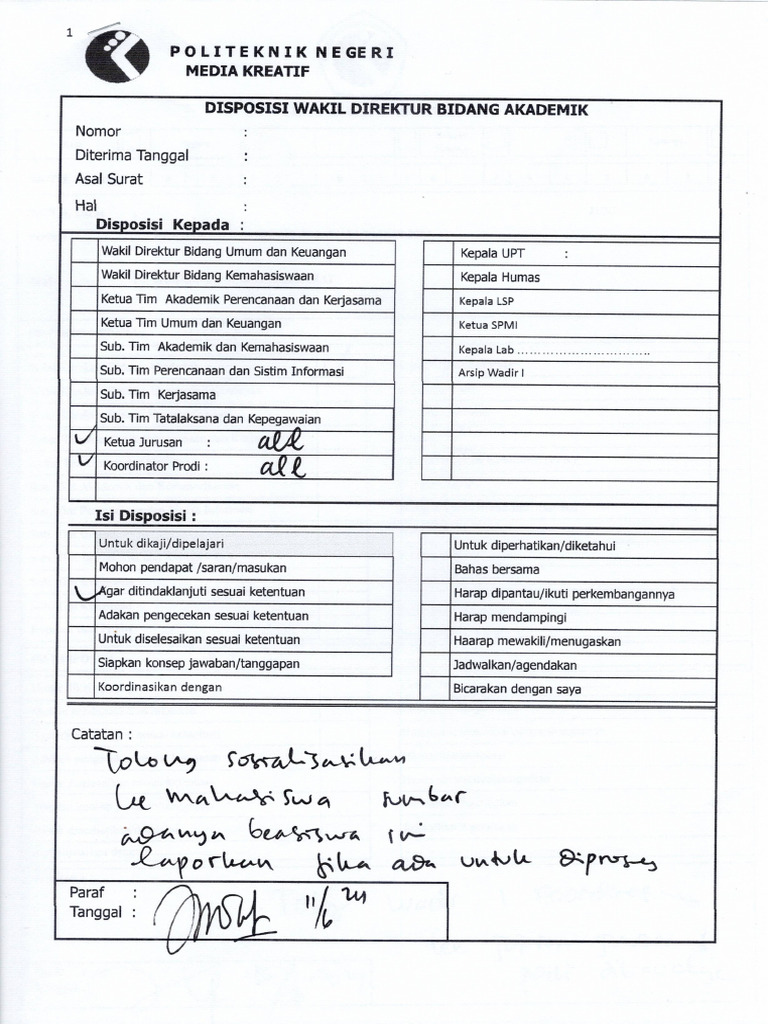 1
POLITEKNIK NEGERI
MEDIA KREATIF
DISPOSISI WAKIL DIREKTUR BIDANG AKADEMIK
Nomor :
Diterima Tanggal :
Asal Surat :
Hal :
Disposisi Kepada :
Wakil Direktur Bidang Umum dan Keuangan
Wakil Direktur Bidang Kemahasiswaan
Ketua Tim Akademik Perencanaan dan Kerjasama
Ketua Tim Umum dan Keuangan
Sub. Tim Akademik dan Kemahasiswaan
Sub. Tim Perencanaan dan Sistim Informasi
Sub. Tim Kerjasama
Sub. Tim Tatalaksana dan Kepegawaian
Ketua Jurusan : all
Koordinator Prodi : all
Kepala UPT :
Kepala Humas
Kepala LSP
Ketua SPMI
Kepala Lab ................................
Arsip Wadir I
Isi Disposisi :
Untuk dikaji/dipelajari
Mohon pendapat /saran/masukan
Agar ditindaklanjuti sesuai ketentuan
Adakan pengecekan sesuai ketentuan
Untuk diselesaikan sesuai ketentuan
Siapkan konsep jawaban/tanggapan
Koordinasikan dengan
Untuk diperhatikan/diketahui
Bahas bersama
Harap dipantau/ikuti perkembangannya
Harap mendampingi
Haarap mewakili/menugaskan
Jadwalkan/agendakan
Bicarakan dengan saya
Catatan :
Tolong sosialisasikan
ke mahasiswa sumbar
adanya beasiswa ini
laporkan jika ada untuk diproses
Paraf :
Tanggal : 11/6 24